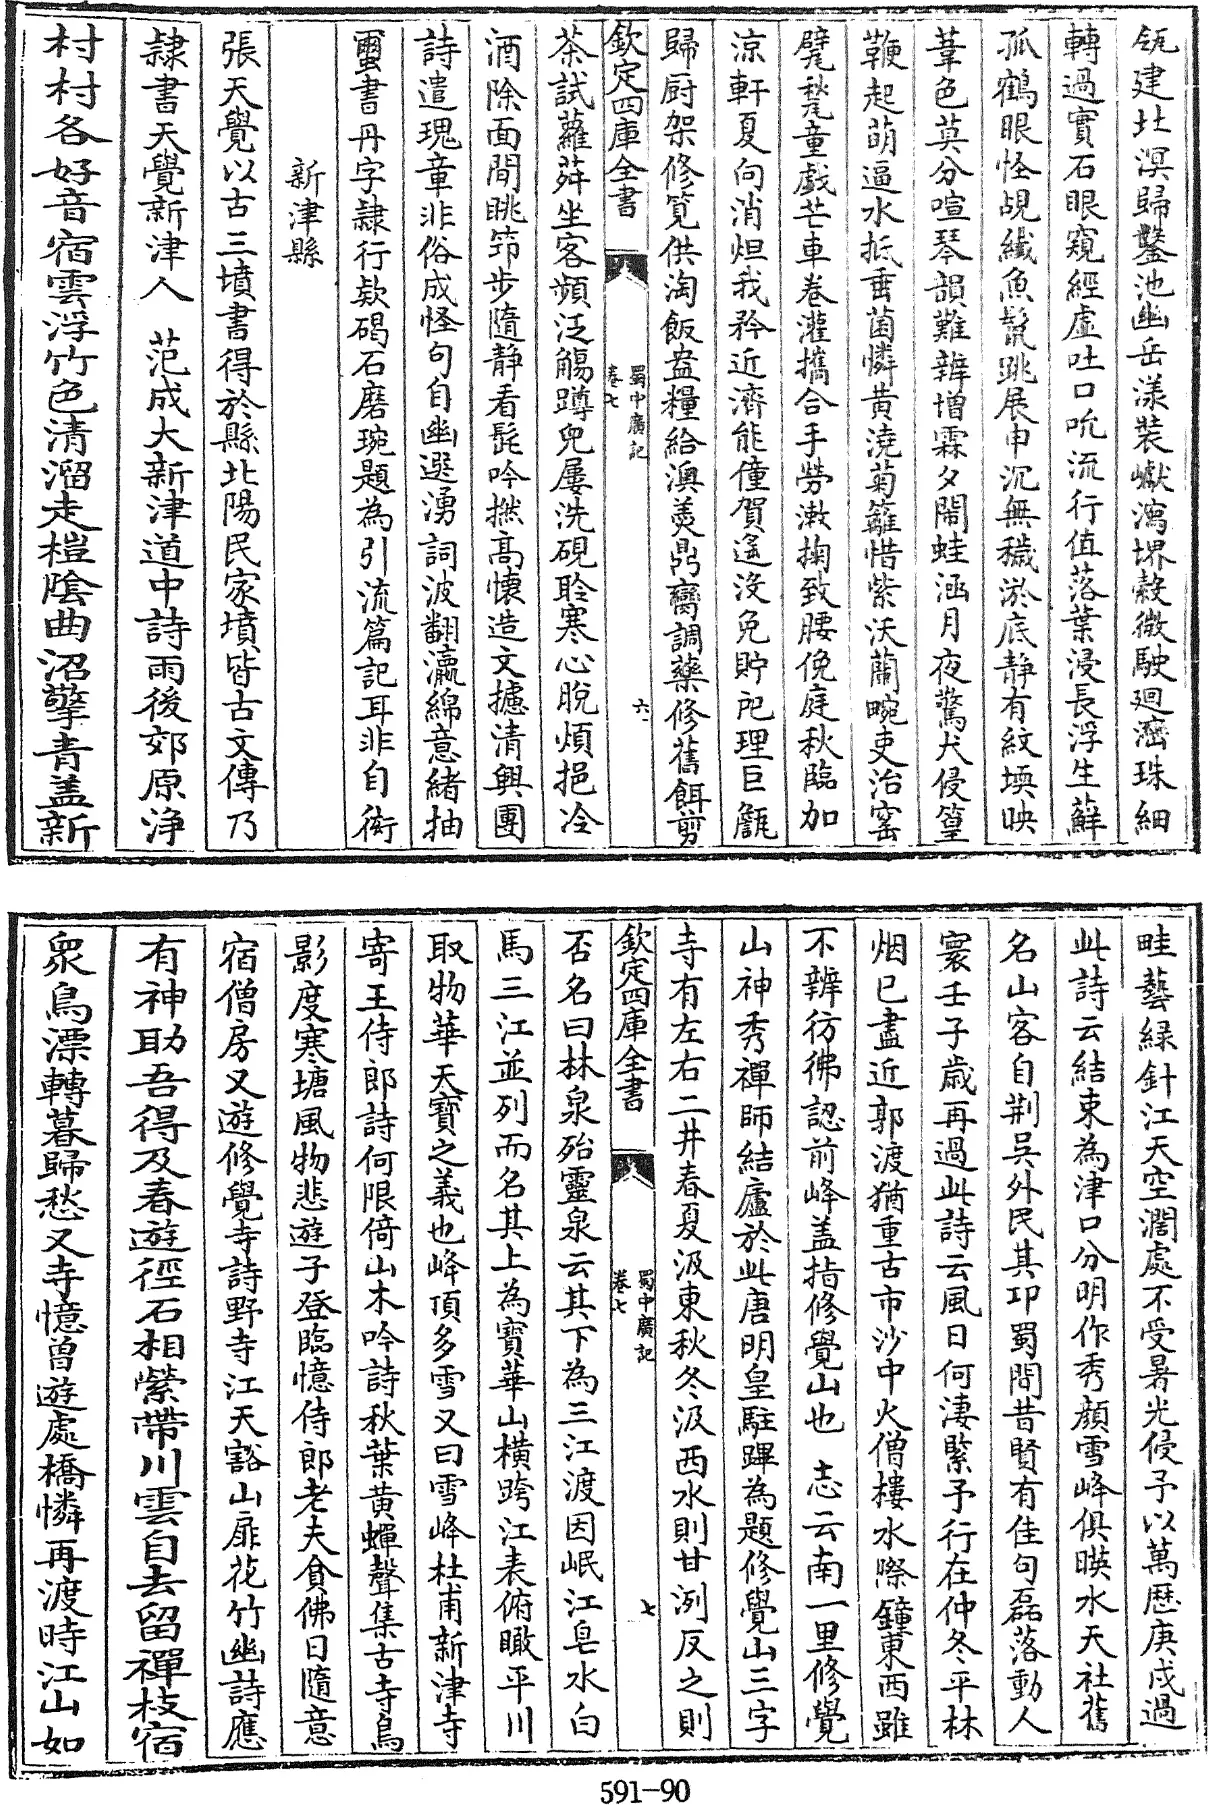 瓴建北溟歸鑿池幽岳漾裝巘瀉堺縠微駛廻濎珠細
轉過實石眼窺經虛吐口吮流行值落葉浸長浮生蘚
孤鶴眼怪覘纖魚鬣跳展申沉無穢淤底靜有紋堧映
葦色莫分喧琴韻難辨增霖夕鬧蛙涵月夜驚犬侵篁
鞭起萌逼水抵垂菌憐黃澆菊籬惜紫沃蘭畹吏治窰
甓秋童戲芒車卷灌攜合手勞漱掬致腰俛庭秋臨加
涼軒夏向消炟我矜近濟能僮賀遙沒免貯卮理巨甌
歸厨架修筧供淘飯盎糧給澳羮鼎臠調藥修舊餌剪
欽定四庫全書
蜀中廣記
卷七
六
茶試蘿荈坐客頻泛觴蹲兒屢洗硯聆寒心脫煩挹冷
酒除面間眺笻步隨靜看髭吟撚高懷造文攄清興團
詩遣瑰章非俗成怪句自幽選湧詞波翻瀛綿意緒抽
蠒書丹字隷行欵碣石磨琬題為引流篇記耳非自衒
新津縣
張天覺以古三墳書得於縣北陽民家墳皆古文傳乃
隷書天覺新津人　范成大新津道中詩雨後郊原淨
村村各好音宿雲浮竹色清溜走榿陰曲沼擎青盖新
畦藝綠針江天空濶處不受暑光侵予以萬歷庚戌過
此詩云結束為津口分明作秀顔雪峰俱暎水天社舊
名山客自荆吳外民其卭蜀間昔賢有佳句磊落動人
寰壬子歲再過此詩云風日何淒緊予行在仲冬平林
烟已盡近郭渡猶重古市沙中火僧樓水際鐘東西雖
不辨彷彿認前峰盖指修覺山也　志云南一里修覺
山神秀禪師結廬於此唐明皇駐蹕為題修覺山三字
寺有左右二井春夏汲東秋冬汲西水則甘洌反之則
欽定四庫全書
蜀中廣記
卷七
七
否名曰林泉殆靈泉云其下為三江渡因岷江皂水白
馬三江並列而名其上為寶華山橫跨江表俯瞰平川
取物華天寶之義也峰頂多雪又曰雪峰杜甫新津寺
寄王侍郎詩何限倚山木吟詩秋葉黄蟬聲集古寺鳥
影度寒塘風物悲遊子登臨憶侍郎老夫貪佛日隨意
宿僧房又遊修覺寺詩野寺江天豁山扉花竹幽詩應
有神助吾得及春遊徑石相縈帶川雲自去留禪枝宿
衆鳥漂轉暮歸愁又寺憶曽遊處橋憐再渡時江山如
591-90